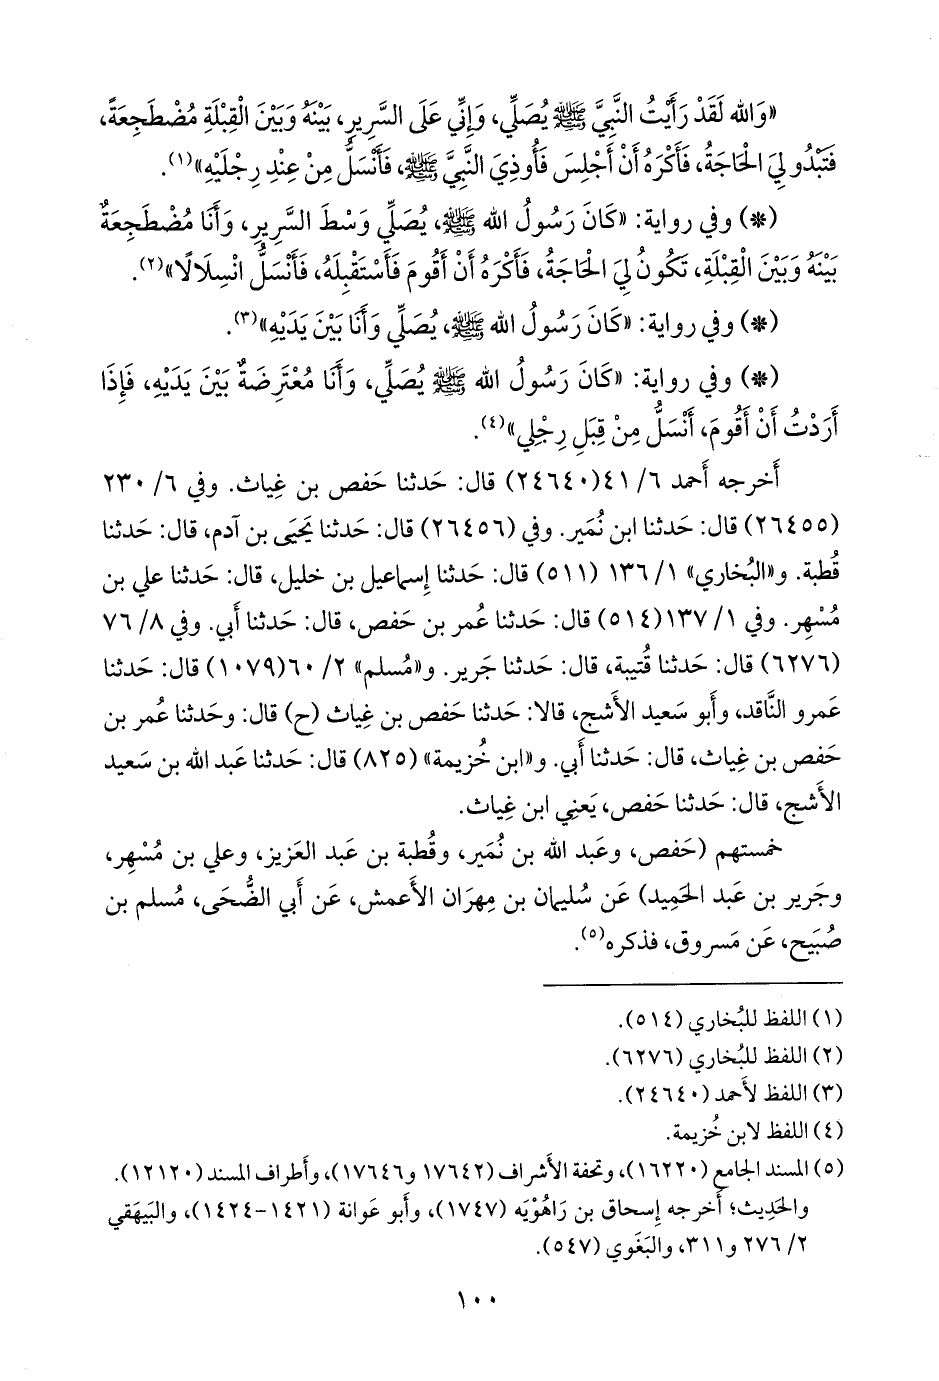 «وَالله لَقَدْ رَأَيْتُ النَّبِيَّ ﷺ يُصَلِّي، وَإِنِّي عَلَى السَّرِيرِ، بَيْنَهُ وَبَيْنَ الْقِبْلَةِ مُضْطَجِعَةً،
فَتَبْدُو لِيَ الْحَاجَةُ، فَأَكْرَهُ أَنْ أَجْلِسَ فَأُوذِيَ النَّبِيَّ ﷺ، فَأَنْسَلُّ مِنْ عِنْدِ رِجْلَيْهِ»(١).
(*) وفي رواية: «كَانَ رَسُولُ الله ﷺ، يُصَلِّي وَسْطَ السَّرِيرِ، وَأَنَا مُضْطَجِعَةٌ
بَيْنَهُ وَبَيْنَ الْقِبْلَةِ، تَكُونُ لِيَ الْحَاجَةُ، فَأَكْرَهُ أَنْ أَقُومَ فَأَسْتَقْبِلَهُ، فَأَنْسَلُّ انْسِلَالًا»(٢).
(*) وفي رواية: «كَانَ رَسُولُ الله ﷺ، يُصَلِّي وَأَنَا بَيْنَ يَدَيْهِ»(٣).
(*) وفي رواية: «كَانَ رَسُولُ الله ﷺ يُصَلِّي، وَأَنَا مُعْتَرِضَةٌ بَيْنَ يَدَيْهِ، فَإِذَا
أَرَدْتُ أَنْ أَقُومَ، أَنْسَلُّ مِنْ قِبَلِ رِجْلِي»(٤).
أَخرجه أَحمد ٦/ ٤١(٢٤٦٤٠) قال: حَدثنا حَفص بن غِياث. وفي ٦/ ٢٣٠
(٢٦٤٥٥) قال: حَدثنا ابن نُمَير. وفي (٢٦٤٥٦) قال: حَدثنا يَحيَى بن آدم، قال: حَدثنا
قُطبة. و«البُخاري» ١/ ١٣٦ (٥١١) قال: حَدثنا إِسماعيل بن خليل، قال: حَدثنا علي بن
مُسْهِر. وفي ١/ ١٣٧(٥١٤) قال: حَدثنا عُمر بن حَفص، قال: حَدثنا أَبي. وفي ٨/ ٧٦
(٦٢٧٦) قال: حَدثنا قُتيبة، قال: حَدثنا جَرير. و«مُسلم» ٢/ ٦٠(١٠٧٩) قال: حَدثنا
عَمرو النَّاقد، وأَبو سَعيد الأَشج، قالا: حَدثنا حَفص بن غِياث (ح) قال: وحَدثنا عُمر بن
حَفص بن غِياث، قال: حَدثنا أَبي. و«ابن خُزيمة» (٨٢٥) قال: حَدثنا عَبد الله بن سَعيد
الأَشج، قال: حَدثنا حَفص، يَعني ابن غِياث.
خمستهم (حَفص، وعَبد الله بن نُمَير، وقُطبة بن عَبد العَزيز، وعلي بن مُسْهِر،
وجَرير بن عَبد الحَمِيد) عَن سُليمان بن مِهرَان الأَعمش، عَن أَبي الضُّحَى، مُسلم بن
صُبَيح، عَن مَسروق، فذكره(٥).
(١) اللفظ للبُخاري (٥١٤).
(٢) اللفظ للبُخاري (٦٢٧٦).
(٣) اللفظ لأَحمد (٢٤٦٤٠).
(٤) اللفظ لابن خُزيمة.
(٥) المسند الجامع (١٦٢٢٠)، وتحفة الأَشراف (١٧٦٤٢ و١٧٦٤٦)، وأَطراف المسند (١٢١٢٠).
والحَدِيث؛ أَخرجه إِسحاق بن رَاهُوْيَه (١٧٤٧)، وأَبو عَوانة (١٤٢١-١٤٢٤)، والبَيهَقي
٢/ ٢٧٦ و٣١١، والبَغَوي (٥٤٧).
١٠٠